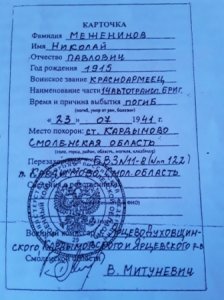 КАРТОЧКА
Фамилия МЕЖЕНИНОВ
Имя НИКОЛАЙ
Отчество ПАВЛОВИЧ
Год рождения 1915
Воинское звание КРАСНОАРМЕЕЦ
Наименование части 14 АВТОТРАНСП. БРИГ.
Время и причина выбытия ПОГИБ
(погиб, умер от ран, болезни)
« 23 » 07 1941 г.
Место похорон: СТ. КАРДЫМОВО
СМОЛЕНСКАЯ ОБЛАСТЬ
Перезахо БВЗ №11-8
П. КАРДЫМОВО, СМОЛ. ОБЛАСТЬ
Сведения о родственниках
Военный комиссар ЯРЦЕВО, ДУХОВЩИН-
СКОГО, КАРДЫМОВСКОГО И ЯРЦЕВСКОГО Р-В
Смоленской области
В. МИТУНЕВИЧ